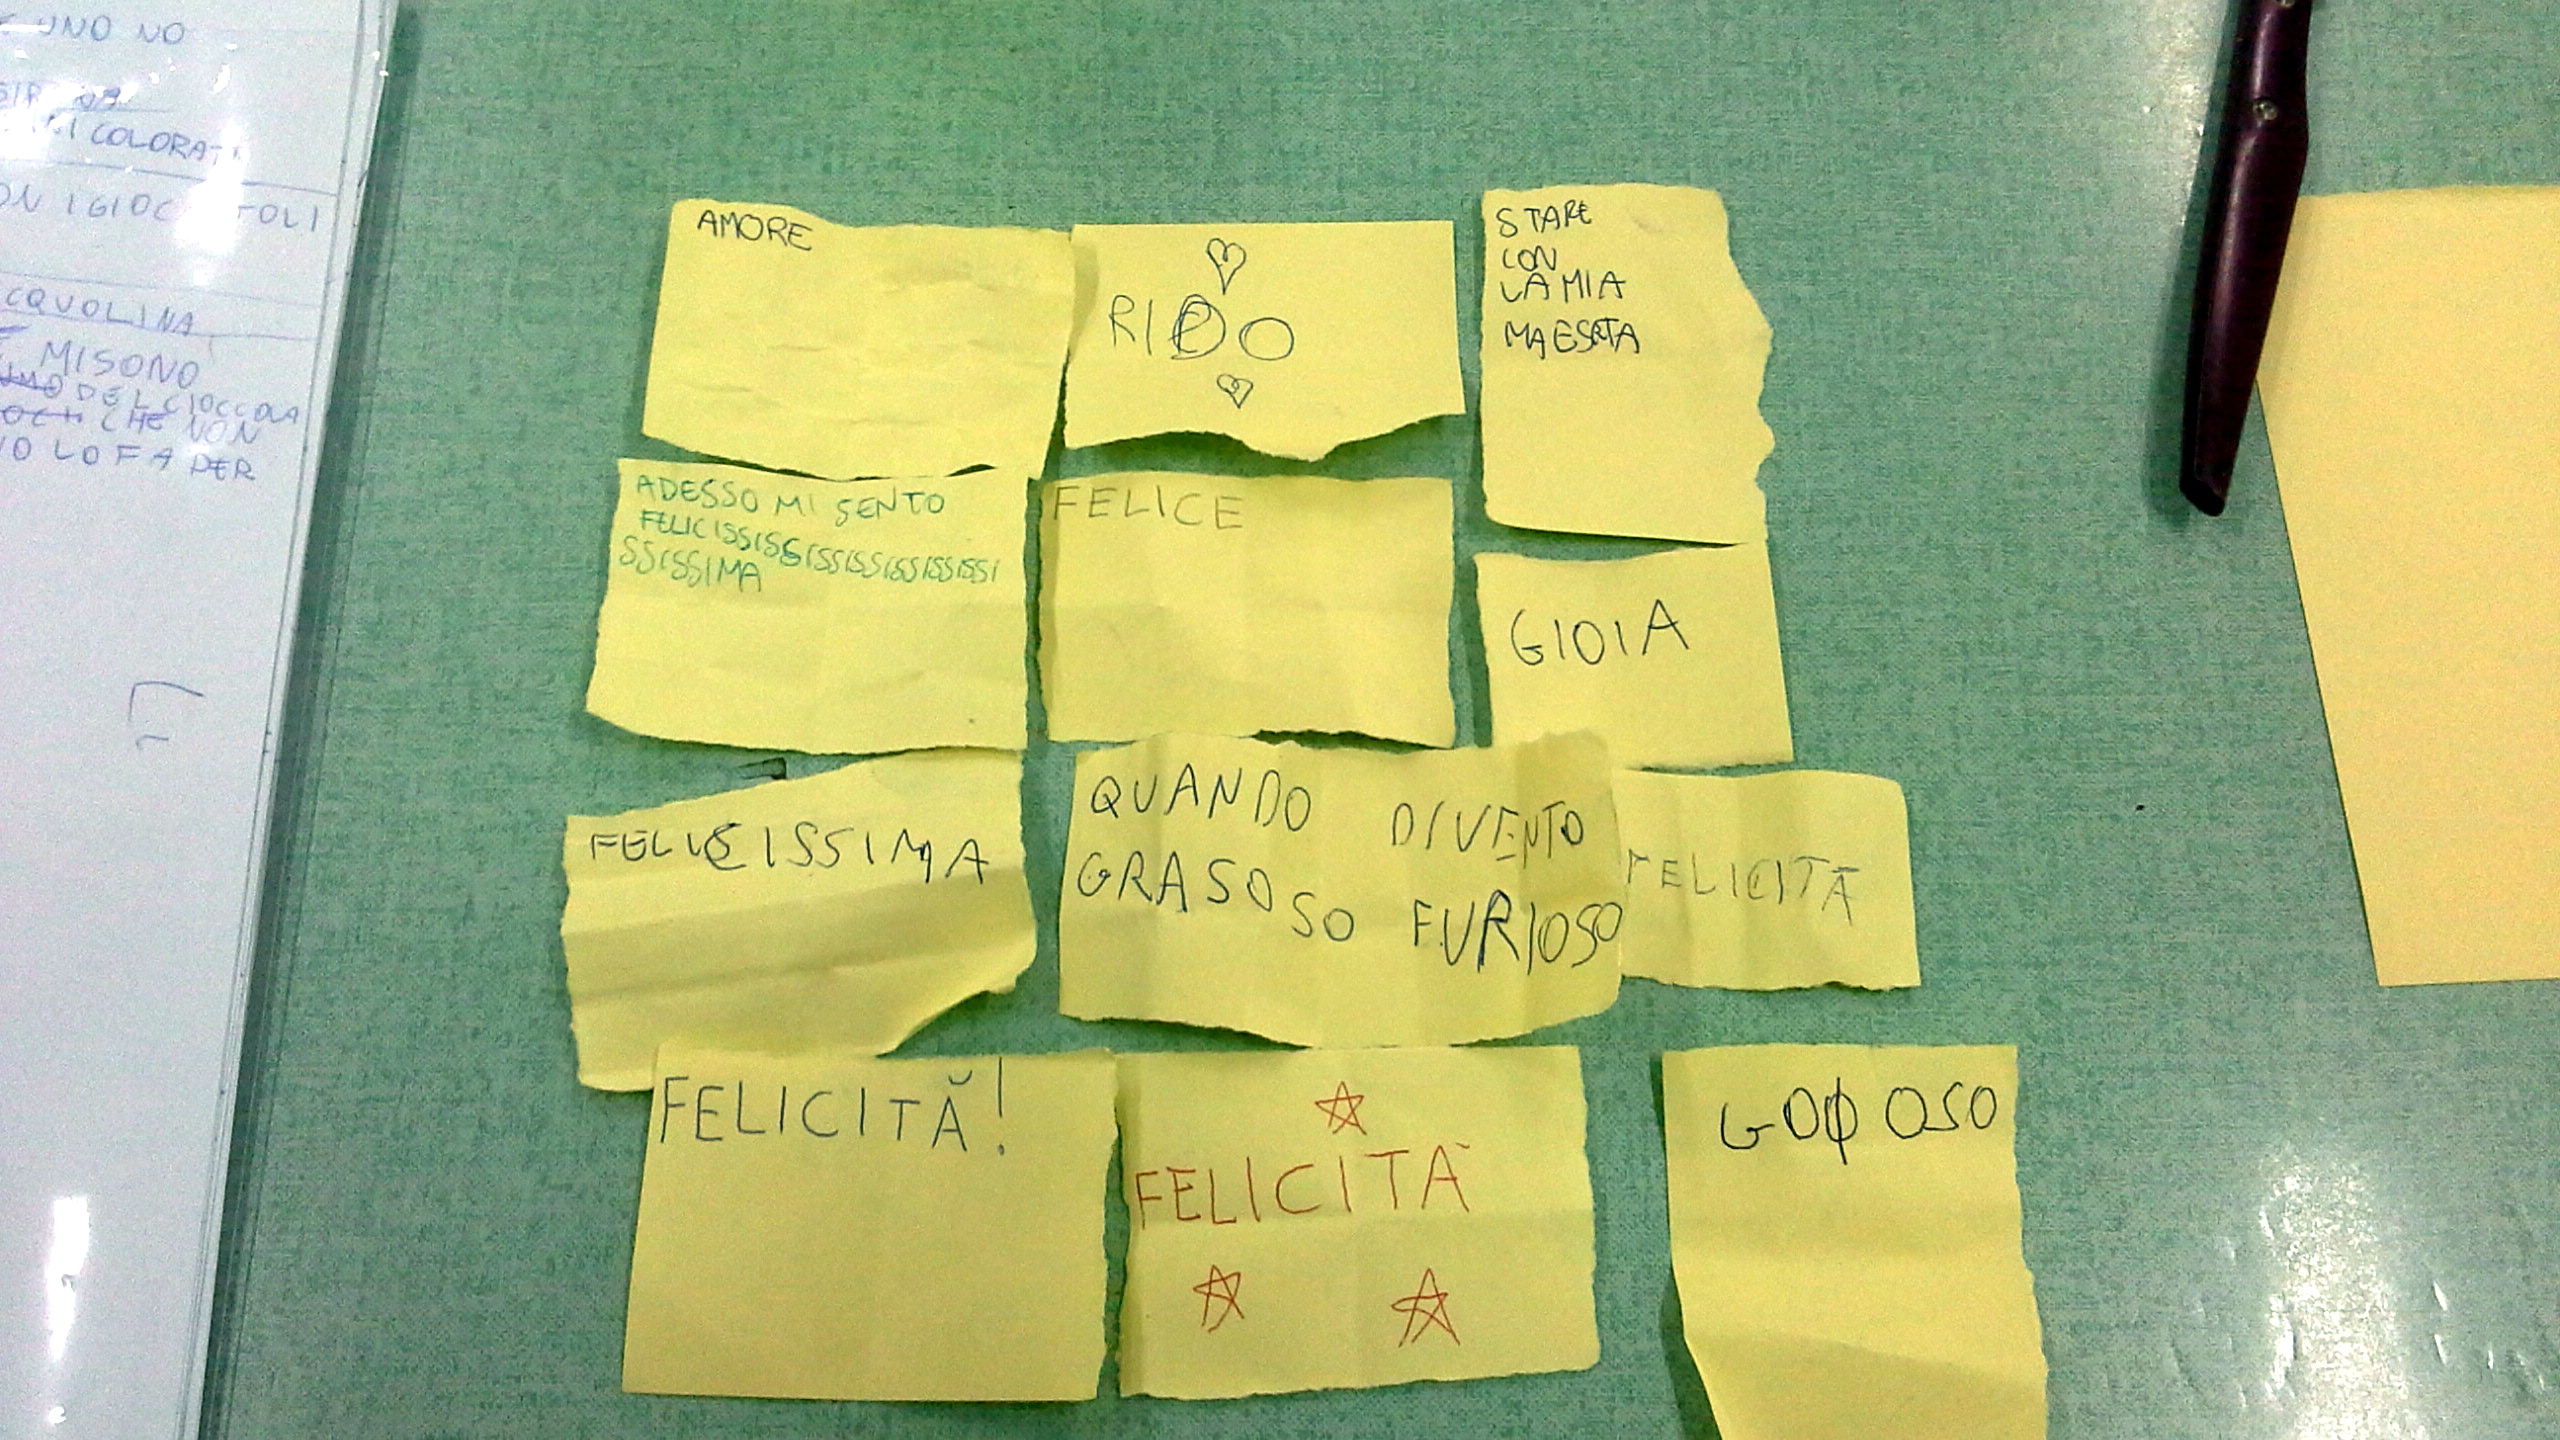 UNO NO
COLORATI
MISONO
DEL CIOCCOLA
CHE NON
LO FA PER
AMORE
RIDO
STARE
CON
LA MIA
MAESRTA
ADESSO MI SENTO
FELICISSISSISSISSISSISSISSI
SSISSIMA
FELICE
GIOIA
FELICISSIMA
QUANDO DIVENTO
GRASOSO FURIOSO
FELICITÀ
FELICITĂ!
FELICITÀ